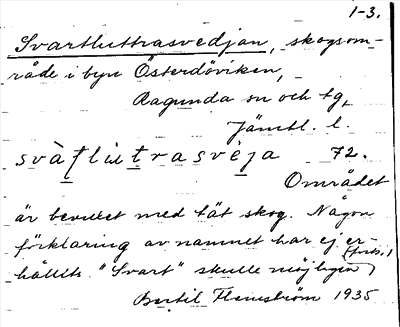 1-3.
Svartluttrasvedjan, skogsom-
råde i byn Österdöviken,
Ragunda sn och tg,
Jämtl. l.
svàţlutrasvèja 72.
Området
är bevuxet med tät skog. Någon
förklaring av namnet har ej er-
hållits. "Svart" skulle möjligen (forts.)
Bertil Flemström 1935